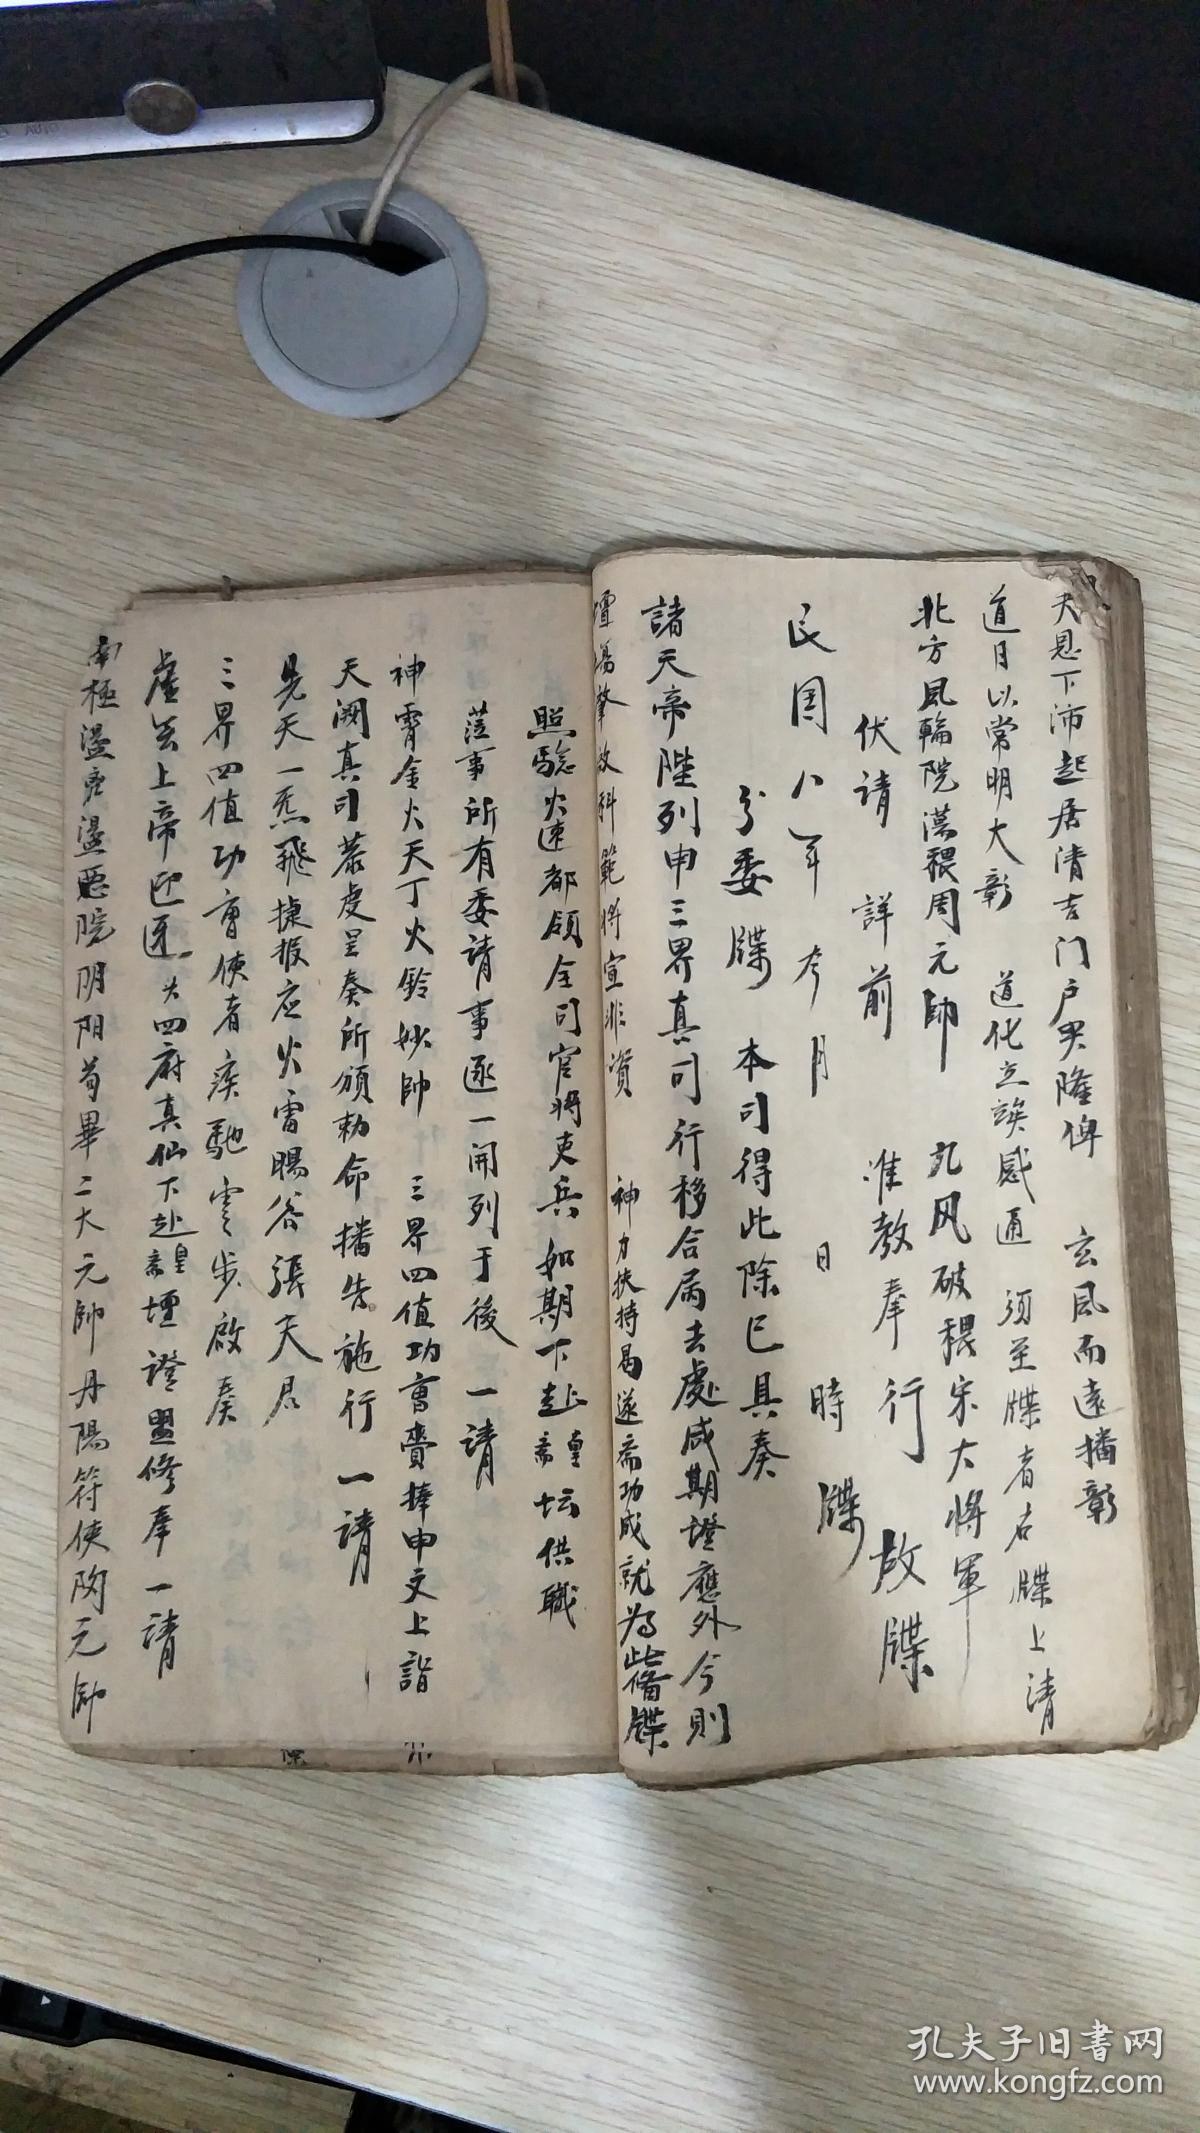 天恩下沛起居清吉门户兴隆俾 玄風而遠播彰
道月以常明大彰 道化立竢感通 须至牒者右牒上清
北方風輪院蕩穢周元帥 九风破穢宋大將軍
伏请 詳前 准教奉行 故牒
民国八年 月 日 時 牒
分委牒 本司得此除已具奏
諸天帝陛列申三界真司行移合属去處咸期證應外今則
壇場肇啟科範將宣非資 神力扶持曷遂斋功成就為此備牒
照驗火速都領全司官將吏兵如期下赴皇斋坛供職
蒞事所有委請事逐一開列于後 一請
神霄金火天丁火鈴妙帥 三界四值功曹賫捧申文上詣
天闕真司恭虔呈奏所頒勅命播告施行 一請
先天一炁飛捷报应火雷暘谷張天君
三界四值功曹使者疾馳雲步啟奏
虚无上帝迎迓 四府真仙下赴皇斋壇證盟修奉 一請
南極 院阴阳苟畢二大元帥丹陽符使陶元帥
孔夫子旧书网
www.kongfz.com